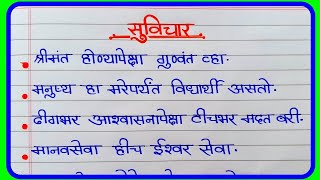 सुविचार
श्रीमंत होण्यापेक्षा गुणवंत व्हा.
मनुष्य हा मरेपर्यंत विद्यार्थी असतो.
ढीगभर आश्वासनापेक्षा टीचभर मदत बरी.
मानवसेवा हीच ईश्वर सेवा.